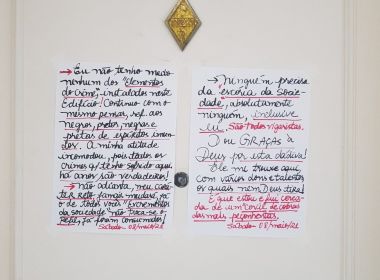 → Eu não tenho medo
nenhum dos "elementos
do crime", instalados neste
Edifício! Continuo com o
mesmo pensar, ref. aos
negros, pretos, negras e
pretas de espíritos imun-
dos. A minha atitude
incomodou, pois todos os
crimes q/ tenho sofrido aqui,
há anos são verdadeiros!
→ não adianta, meu cará-
ter Reto, jamais mudará, já
o de todos vocês "Excrementos
da sociedade" não troca-se o
refil, já foram consumados!
Salvador 08/maio/21
→ Ninguém precisa
da escória da socie-
dade, absolutamente
ninguém, inclusive
eu. São todos vigaristas.
Dou GRAÇAS à
Deus por esta dádiva!
Ele me trouxe aqui,
com vários dons e talentos
os quais nem Deus tira!
E que estou e fui cerca-
da de um covil de cobras
das mais peçonhentas.
Salvador 08/maio/21